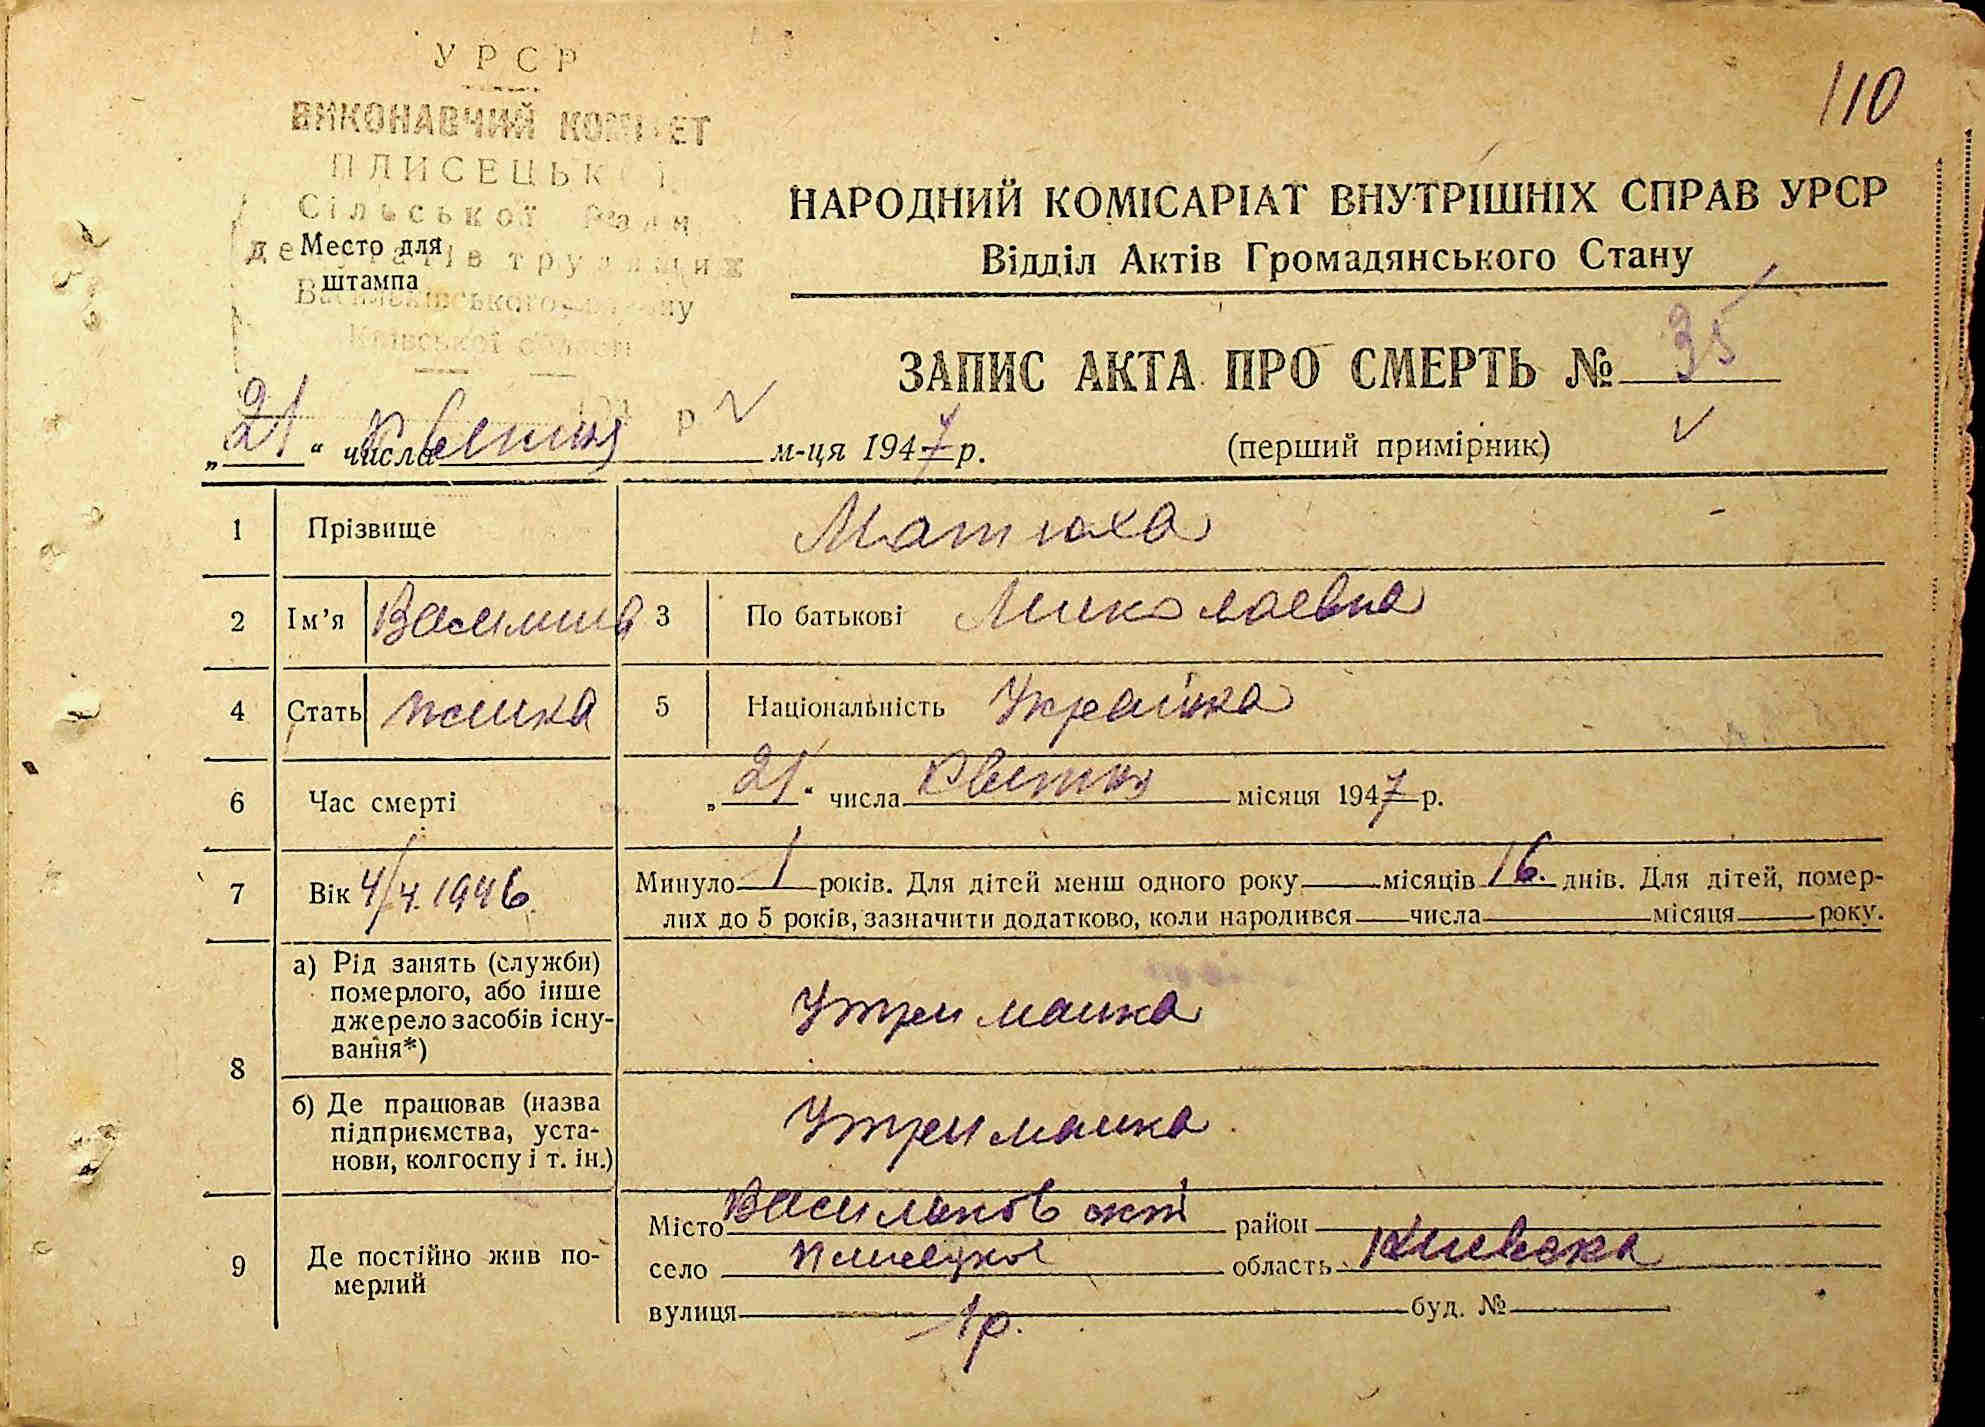 110
УРСР
ВИКОНАВЧИЙ КОМІТЕТ
ПЛИСЕЦЬКОЇ
Сільської Ради
депутатів трудящих
Васильківського району
Київської області
Место для
штампа
НАРОДНИЙ КОМІСАРІАТ ВНУТРІШНІХ СПРАВ УРСР
Відділ Актів Громадянського Стану
ЗАПИС АКТА ПРО СМЕРТЬ № 35
„21“ числа Квітня м-ця 1947 р. (перший примірник)
1 Прізвище Матюха
2 Ім’я Василина 3 По батькові Миколаевна
4 Стать жінка 5 Національність Українка
6 Час смерті „21“ числа Квітня місяця 1947 р.
7 Вік 4/4.1946 Минуло 1 років. Для дітей менш одного року місяців 16 днів. Для дітей, помер-
лих до 5 років, зазначити додатково, коли народився числа місяця року.
8 а) Рід занять (служби)
померлого, або інше
джерело засобів існу-
вання*) Утриманка
б) Де працював (назва
підприємства, уста-
нови, колгоспу і т. ін.) Утриманка
9 Де постійно жив по-
мерлий
Місто Васильковский район
село Плисецкое область Киевска
вулиця буд. №
1р.